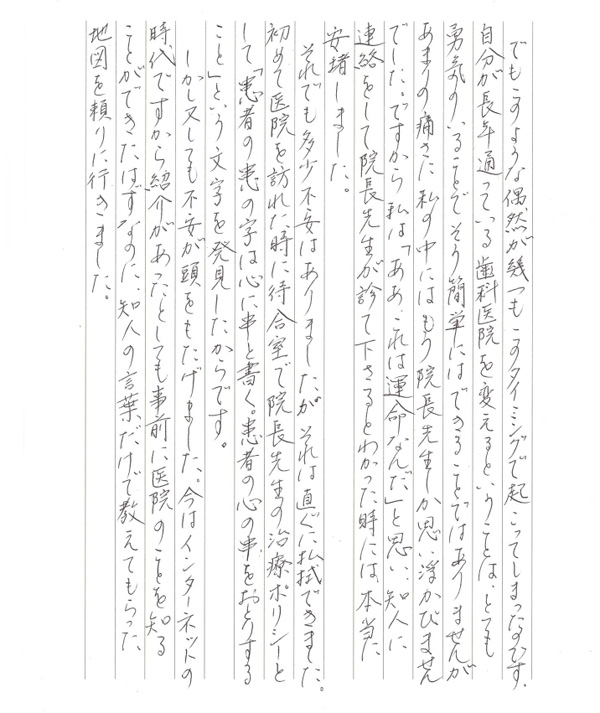 でもこのような偶然が幾つもこのタイミングで起こってしまったのです。
自分が長年通っている歯科医院を変えるということは、とても
勇気のいることでそう簡単にはできることではありませんが
あまりの痛さに私の中にはもう院長先生しか思い浮かびません
でした。ですから私は「ああ、これは運命なんだ」と思い、知人に
連絡をして院長先生が診て下さるとわかった時には、本当に
安堵しました。
それでも多少不安はありましたが、それは直ぐに払拭できました。
初めて医院を訪れた時に待合室で院長先生の治療ポリシーと
して「患者の患の字は心に串と書く。患者の心の串をおとりする
こと」という文字を発見したからです。
しかし又しても不安が頭をもたげました。今はインターネットの
時代ですから紹介があったとしても事前に医院のことを知る
ことができたはずなのに、知人の言葉だけで教えてもらった
地図を頼りに行きました。